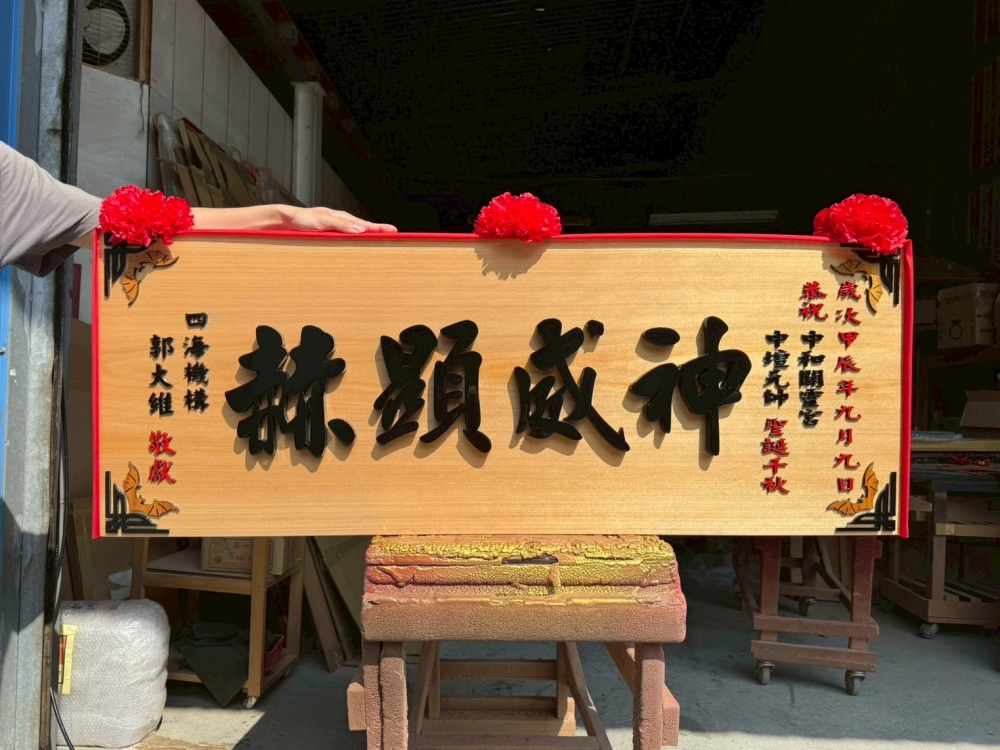 歲次甲辰年九月九日
恭祝
中和關靈宮
中壇元帥 聖誕千秋
神威顯赫
四海機構
郭大維 敬獻